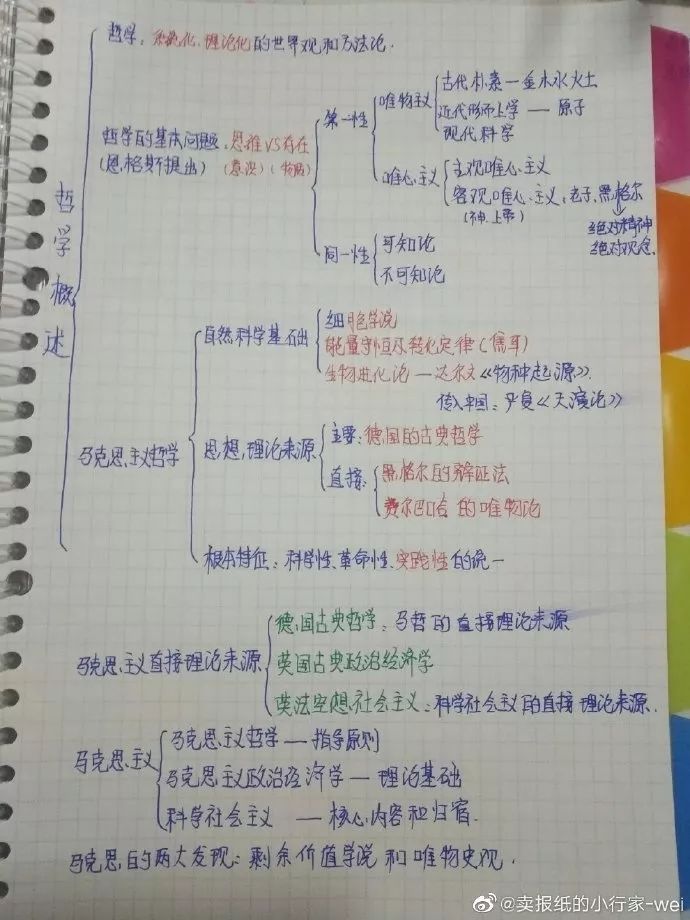 哲学概述
哲学：系统化、理论化的世界观和方法论.
哲学的基本问题：思维VS存在
(恩格斯提出) (意识)(物质)
第一性
唯物主义
古代朴素—金木水火土
近代形而上学——原子
现代科学
唯心主义
主观唯心主义
客观唯心主义：老子、黑格尔
(神.上帝)
绝对精神
绝对观念.
同一性
可知论
不可知论
马克思主义哲学
自然科学基础
细胞学说
能量守恒及转化定律(焦耳)
生物进化论—达尔文《物种起源》.
传入中国：严复《天演论》
思想理论来源
主要：德国的古典哲学
直接：
黑格尔的辩证法
费尔巴哈的唯物论
根本特征：科学性、革命性、实践性的统一
马克思主义直接理论来源
德国古典哲学：马哲的直接理论来源
英国古典政治经济学
英法空想社会主义：科学社会主义的直接理论来源.
马克思主义
马克思主义哲学—指导原则
马克思主义政治经济学—理论基础
科学社会主义——核心内容和归宿.
马克思的两大发现：剩余价值学说和唯物史观.
@卖报纸的小行家-wei